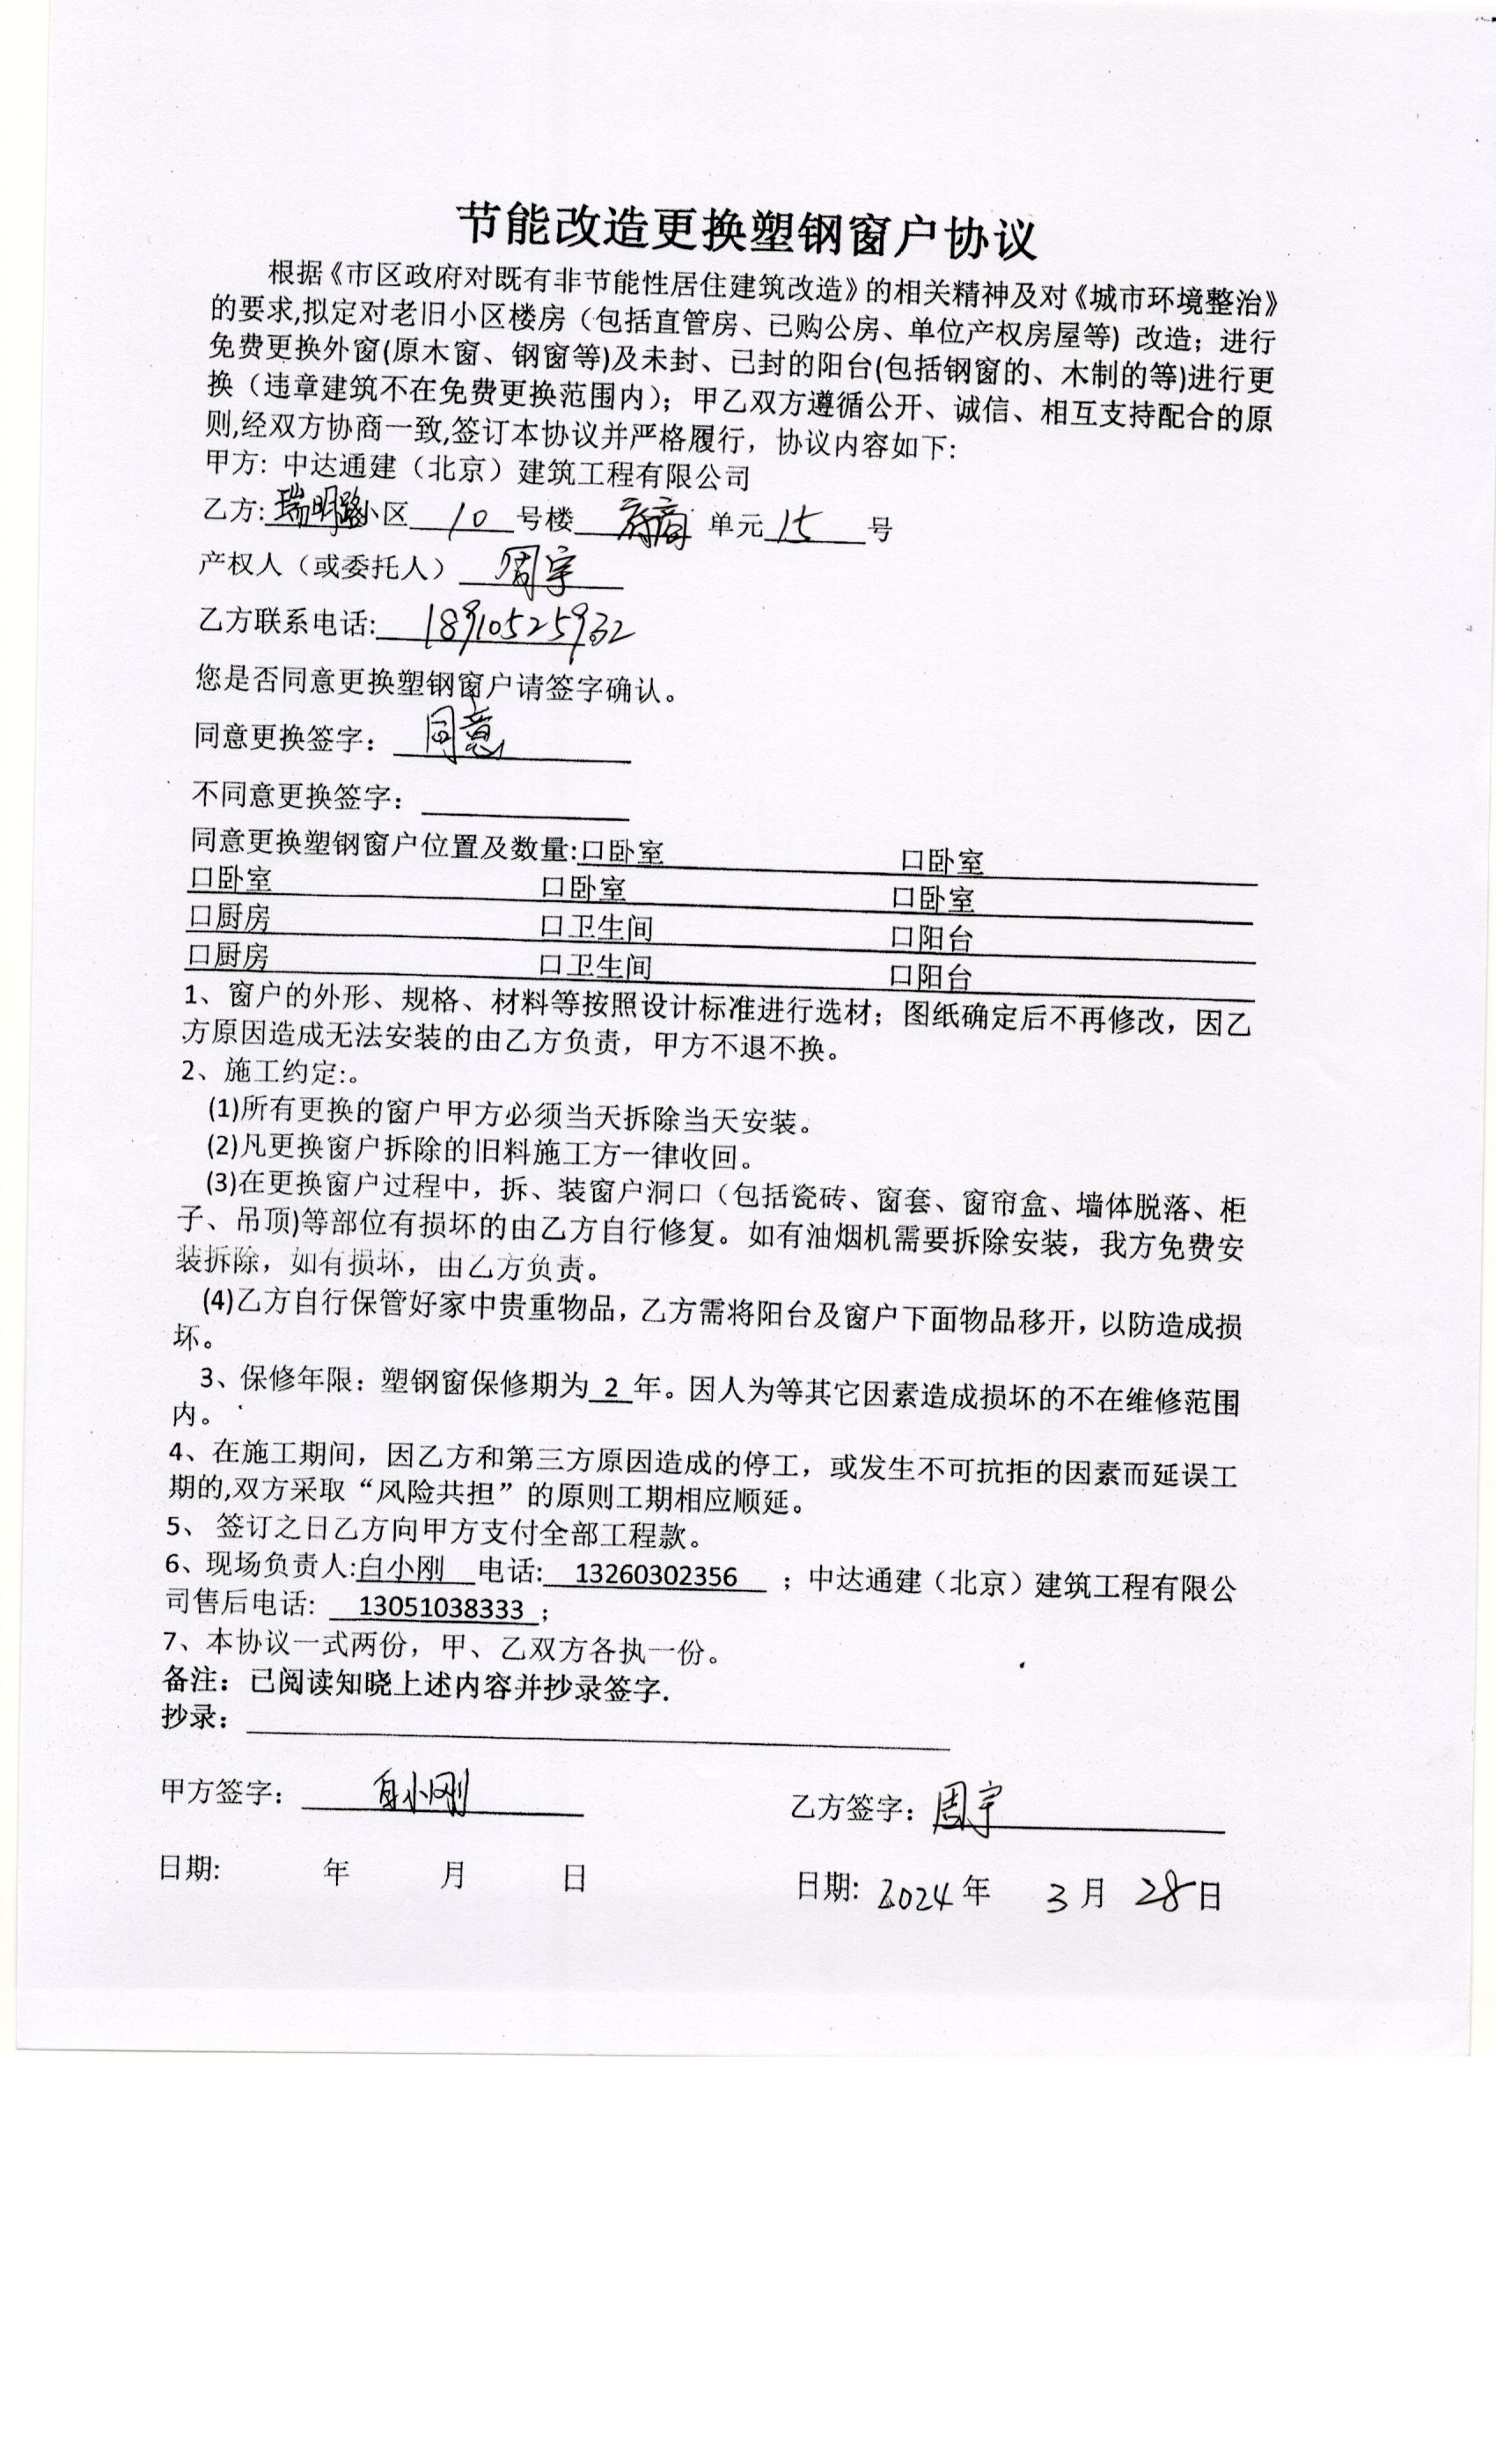 节能改造更换塑钢窗户协议
根据《市区政府对既有非节能性居住建筑改造》的相关精神及对《城市环境整治》
的要求,拟定对老旧小区楼房（包括直管房、已购公房、单位产权房屋等）改造；进行
免费更换外窗(原木窗、钢窗等)及未封、已封的阳台(包括钢窗的、木制的等)进行更
换（违章建筑不在免费更换范围内）；甲乙双方遵循公开、诚信、相互支持配合的原
则,经双方协商一致,签订本协议并严格履行，协议内容如下:
甲方: 中达通建（北京）建筑工程有限公司
乙方: 瑞明路小区 10 号楼 单元 15 号
产权人（或委托人） 周宇
乙方联系电话: 18910525932
您是否同意更换塑钢窗户请签字确认。
同意更换签字： 同意
不同意更换签字：
同意更换塑钢窗户位置及数量:口卧室 口卧室
口卧室 口卧室 口卧室
口厨房 口卫生间 口阳台
口厨房 口卫生间 口阳台
1、窗户的外形、规格、材料等按照设计标准进行选材；图纸确定后不再修改，因乙
方原因造成无法安装的由乙方负责，甲方不退不换。
2、施工约定:。
(1)所有更换的窗户甲方必须当天拆除当天安装。
(2)凡更换窗户拆除的旧料施工方一律收回。
(3)在更换窗户过程中，拆、装窗户洞口（包括瓷砖、窗套、窗帘盒、墙体脱落、柜
子、吊顶)等部位有损坏的由乙方自行修复。如有油烟机需要拆除安装，我方免费安
装拆除，如有损坏，由乙方负责。
(4)乙方自行保管好家中贵重物品，乙方需将阳台及窗户下面物品移开，以防造成损
坏。
3、保修年限：塑钢窗保修期为 2 年。因人为等其它因素造成损坏的不在维修范围
内。
4、在施工期间，因乙方和第三方原因造成的停工，或发生不可抗拒的因素而延误工
期的,双方采取“风险共担”的原则工期相应顺延。
5、 签订之日乙方向甲方支付全部工程款。
6、现场负责人:白小刚 电话: 13260302356 ；中达通建（北京）建筑工程有限公
司售后电话: 13051038333 ；
7、本协议一式两份，甲、乙双方各执一份。
备注：已阅读知晓上述内容并抄录签字.
抄录：
甲方签字： 白小刚 乙方签字：周宇
日期: 年 月 日 日期: 2024年 3月 28日